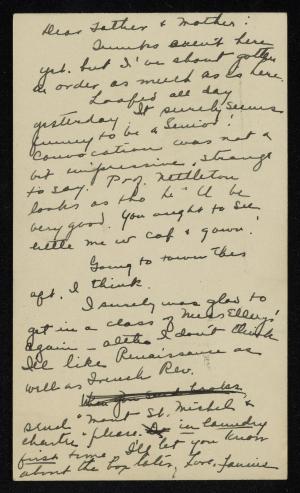 Dear Father & Mother:
Trunks aren't here
yet. but I've about gotten
in order as much as is here.
Loafed all day
yesterday. It surely seems
funny to be a Senior!
Convocation was not a
bit impressive, strange
to say. Prof. Nettleton
looks as tho he'll be
very good. You ought to see
little me in cap & gown!
Going to town this
aft. I think.
I surely was glad to
get in a class of Miss Ellery's
again - altho I don't think
I'll like Renaissance as
well as French Rev.
When you send books
send "Mont St. Michel &
Chartre" please. in laundry
first time. I'll let you know
about the box later, Love,